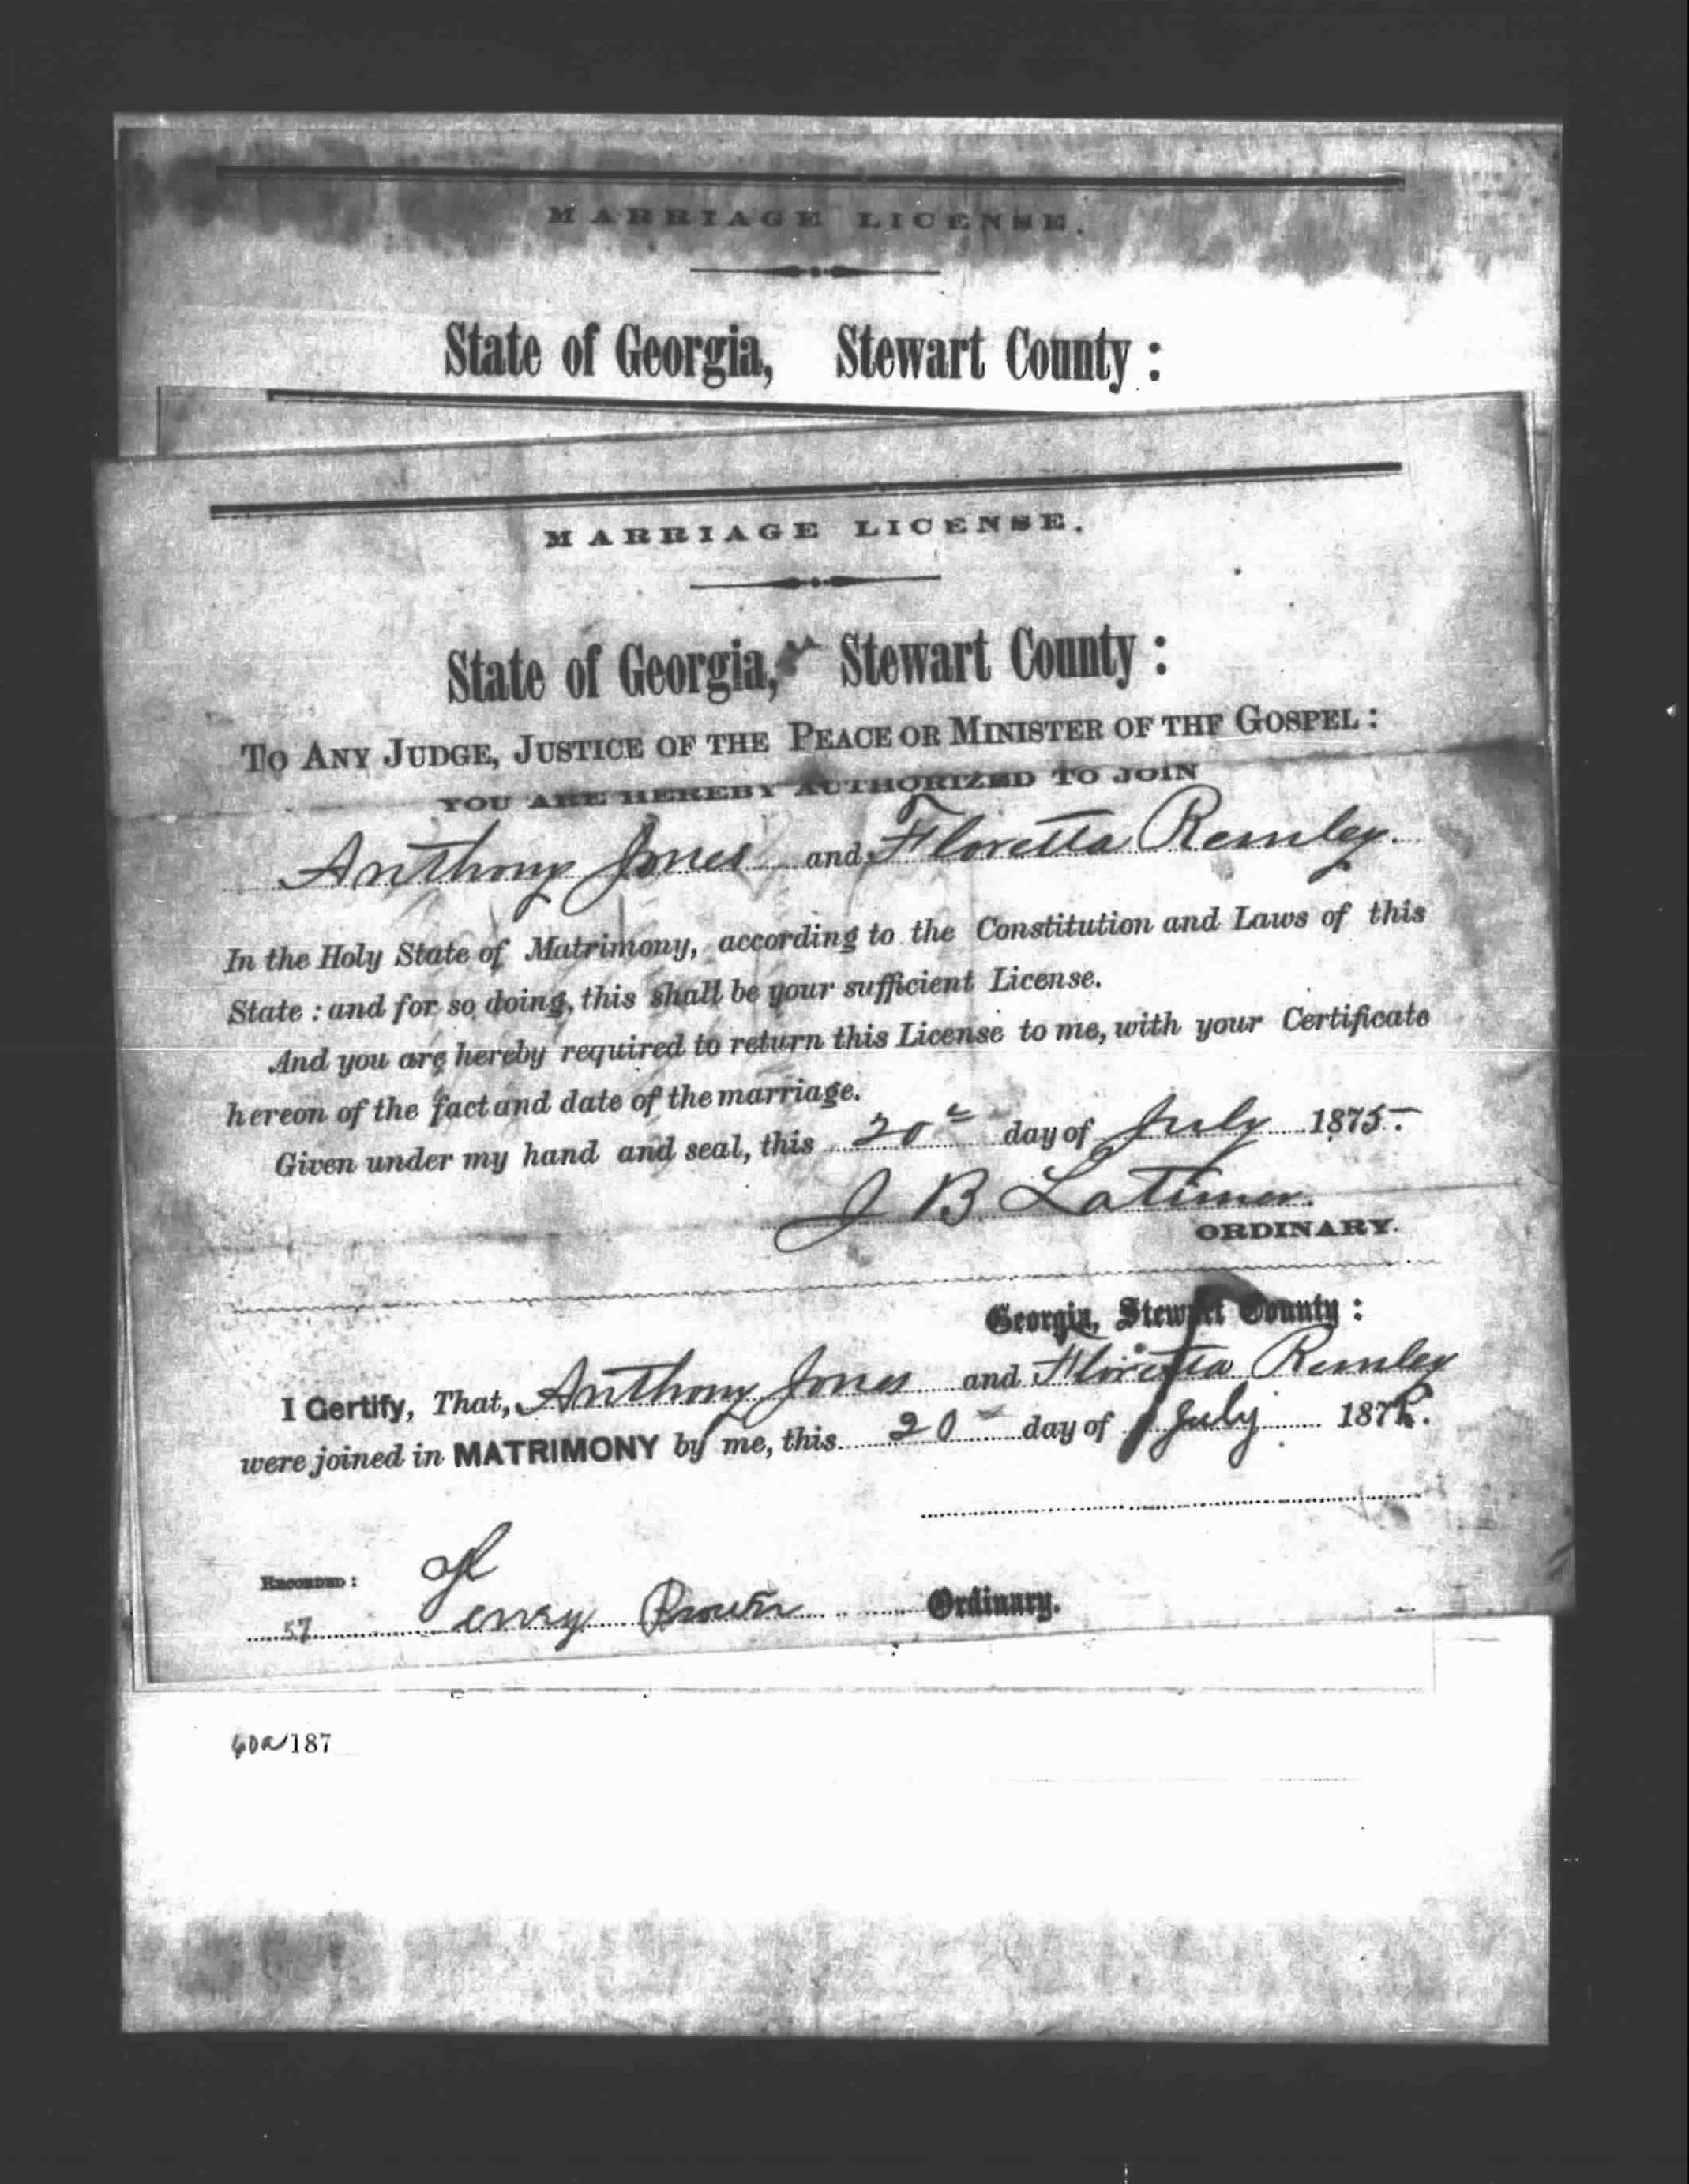 MARRIAGE LICENSE.
State of Georgia, Stewart County :
MARRIAGE LICENSE.
State of Georgia, Stewart County :
TO ANY JUDGE, JUSTICE OF THE PEACE OR MINISTER OF THE GOSPEL :
YOU ARE HEREBY AUTHORIZED TO JOIN
Anthony Jones and Floretta Remley.
In the Holy State of Matrimony, according to the Constitution and Laws of this
State : and for so doing, this shall be your sufficient License.
And you are hereby required to return this License to me, with your Certificate
hereon of the fact and date of the marriage.
Given under my hand and seal, this 20th day of July 1875.
J B Latimer.
ORDINARY.
Georgia, Stewart County :
I Certify, That, Anthony Jones and Floretta Remley
were joined in MATRIMONY by me, this 20 day of July 187.
RECORDED :
57 Brown Ordinary.
60a 187